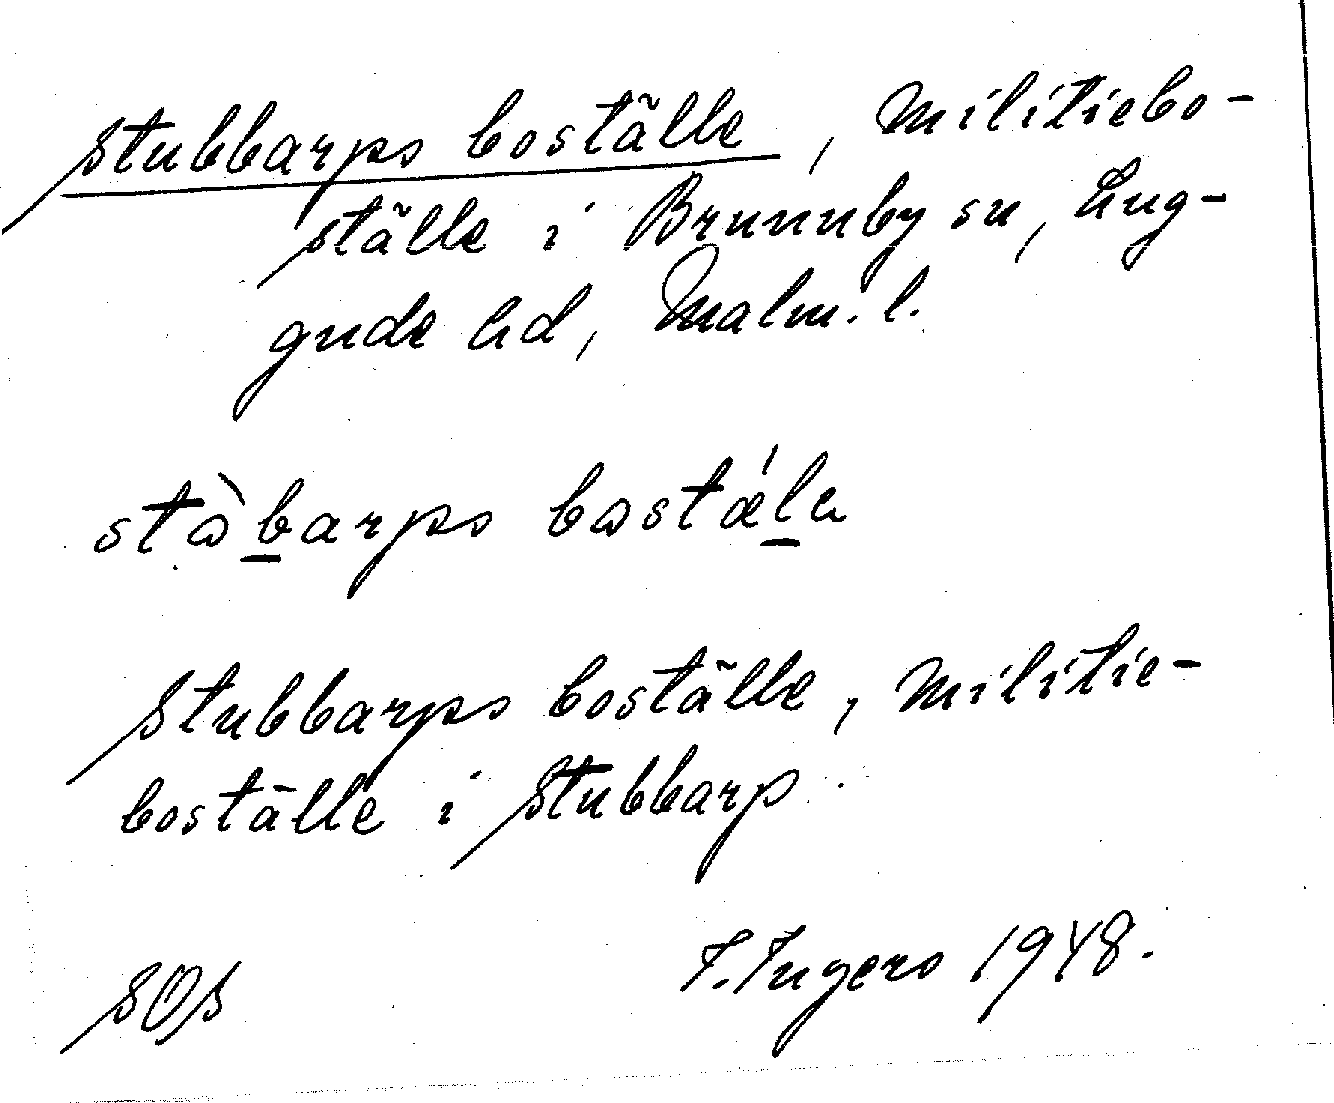 Stubbarps boställe, militiebo-
ställe i Brunnby sn, Lug-
gude hd, Malm. l.
stɷ̀barps bɷstǽla
Stubbarps boställe, militie-
boställe i Stubbarp.
SOS
I. Ingers 1948.